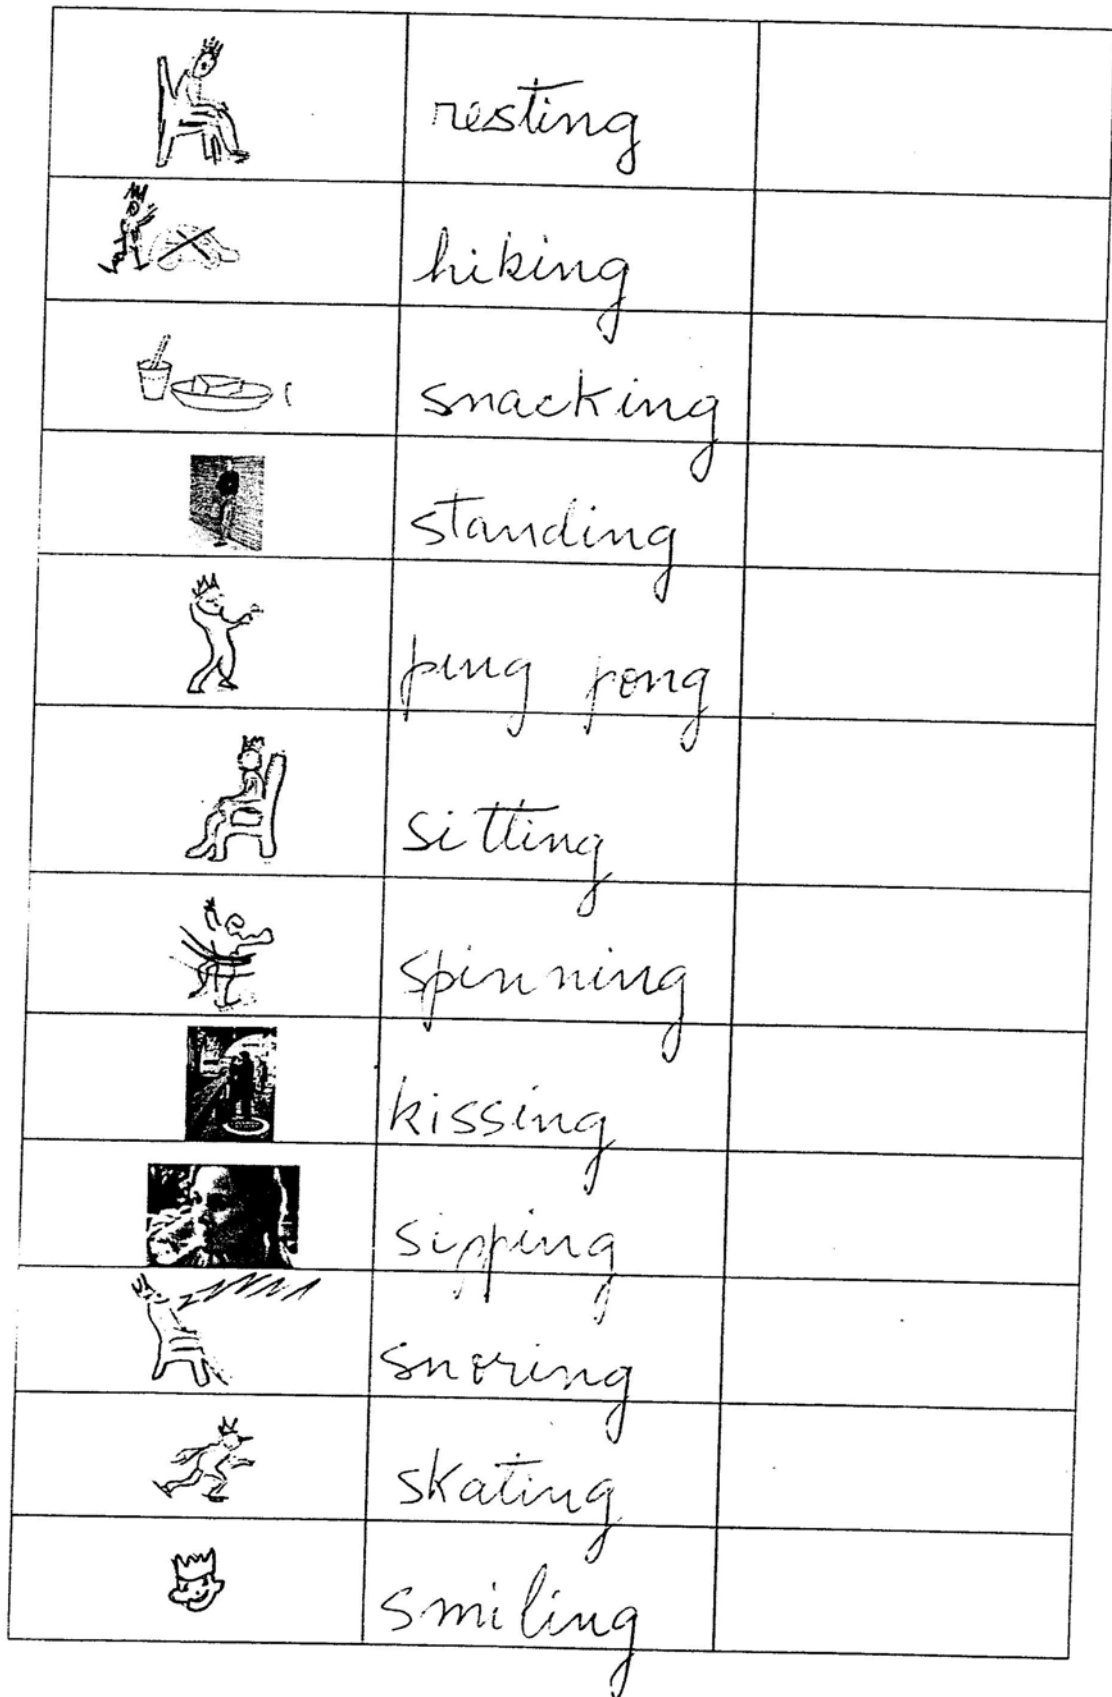 resting
hiking
snacking
standing
ping pong
sitting
spinning
kissing
sipping
snoring
skating
smiling